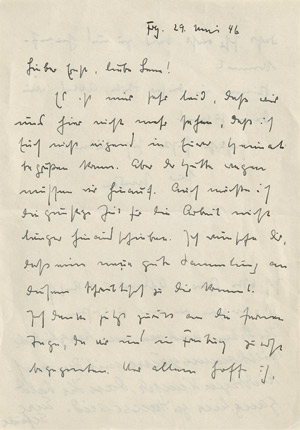 Frg. 29. Mai 46
Lieber Ernst, liebe
Es ist mir sehr leid, daß wir
uns hier nicht mehr sehen, daß ich
Euch nicht eigens in Eurer Heimat
begrüßen kann. Aber der Hütte wegen
müssen wir hinauf. Auch möchte ich
die günstige Zeit für die Arbeit nicht
länger hinausschieben. Ich wünsche Dir,
daß eine neue gute Sammlung an
Deinem Schreibtisch zu Dir kommt.
Ich denke jetzt zurück an die fernen
Tage, da wir uns in Freiburg zuerst
begegneten. Vor allem hoffe ich,